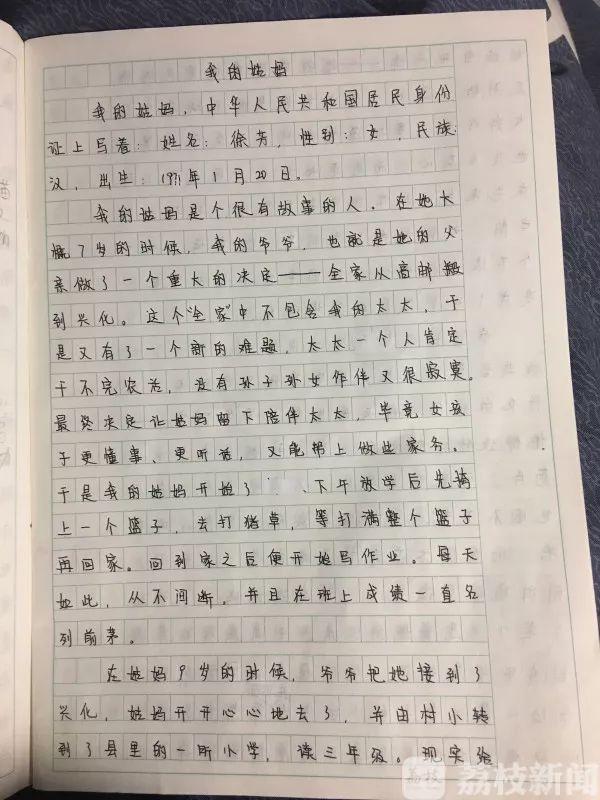 我的姑妈
我的姑妈，中华人民共和国居民身份
证上写着：姓名：徐芳，性别：女，民族：
汉，出生：1971年1月20日。
我的姑妈是个很有故事的人。在她大
概7岁的时候，我的爷爷，也就是她的父
亲做了一个重大的决定——全家从高邮搬
到兴化。这个“全家”中不包含我的太太，于
是又有了一个新的难题，太太一个人肯定
干不完农活，没有孙子孙女作伴又很寂寞。
最终决定让姑妈留下陪伴太太，毕竟女孩
子更懂事、更听话，又能帮上做些家务。
于是我的姑妈开始了 、下午放学后先骑
上一个篮子，去打猪草，等打满整个篮子
再回家。回到家之后便开始写作业。每天
如此，从不间断。并且在班上成绩一直名
列前茅。
在姑妈9岁的时候，爷爷把她接到了
兴化，姑妈开开心心地去了，并由村小转
到了县里的一所小学，读三年级。现实给
荔枝新闻